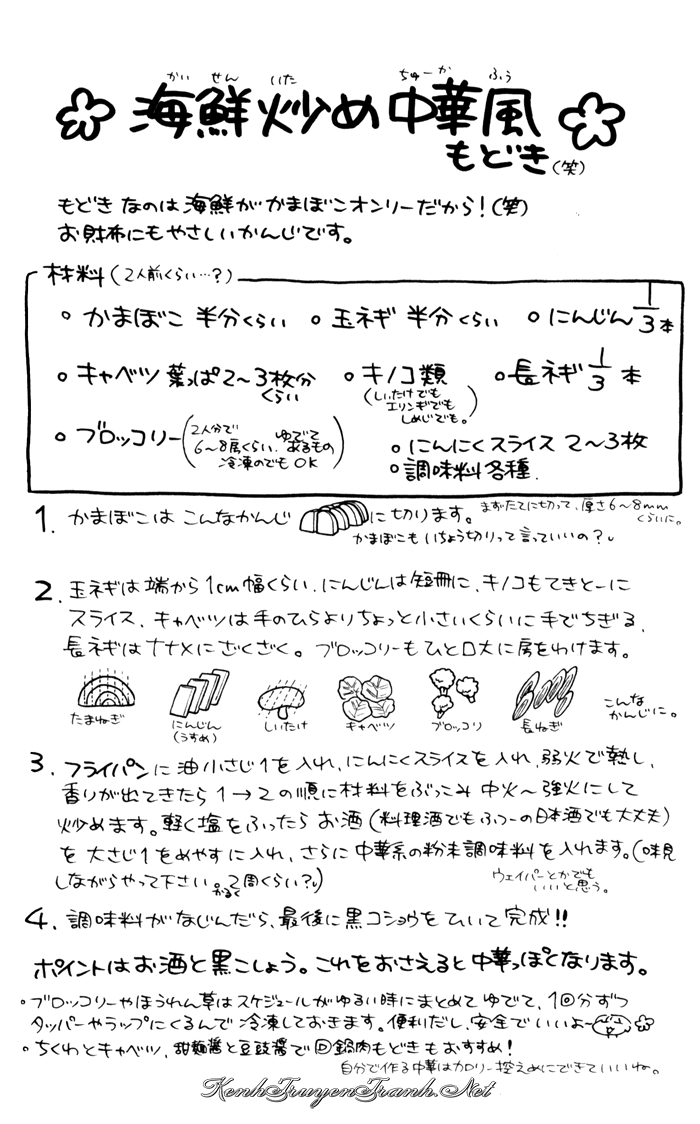 かい せん いた ちゅーか ふう
海鮮炒め中華風
もどき(笑)
もどきなのは海鮮がかまぼこオンリーだから!(笑)
お財布にもやさしいかんじです。
材料(2人前くらい…?)
○かまぼこ 半分くらい ○玉ネギ 半分くらい ○にんじん1/3本
○キャベツ 葉っぱ2〜3枚分くらい ○キノコ類(しいたけでもエリンギでもしめじでも。) ○長ネギ1/3本
○ブロッコリー(2人分で6〜8房くらい。ゆでてあるもの 冷凍のでもOK)
○にんにくスライス 2〜3枚
○調味料各種.
1. かまぼこは こんなかんじ に切ります。まずたてに切って、厚さ6〜8mmくらいに。
かまぼこもいちょう切りって言っていいの?
2. 玉ネギは端から1cm幅くらい、にんじんは短冊に、キノコもてきとーに
スライス、キャベツは手のひらよりちょっと小さいくらいに手でちぎる、
長ネギはナナメにざくざく。ブロッコリーもひと口大に房をわけます。
たまねぎ にんじん(うすめ) しいたけ キャベツ ブロッコリ 長ねぎ こんなかんじに。
3. フライパンに油小さじ1を入れ、にんにくスライスを入れ、弱火で熱し、
香りが出てきたら1→2の順に材料をぶっこみ中火〜強火にして
炒めます。軽く塩をふったらお酒(料理酒でもふつーの日本酒でも大丈夫)
を大さじ1をめやすに入れ、さらに中華系の粉末調味料を入れます。(味見
しながらやって下さい。かるく2周くらい?)
ウェイパーとかでもいいと思う。
4. 調味料がなじんだら、最後に黒コショウをひいて完成!!
ポイントはお酒と黒こしょう。これをおさえると中華っぽくなります。
○ブロッコリーやほうれん草はスケジュールがゆるい時にまとめてゆでて、1回分ずつ
タッパーやラップにくるんで冷凍しておきます。便利だし、安全でいいよー
○ちくわとキャベツ、甜麺醤と豆豉醤で回鍋肉もどきもおすすめ!
自分で作る中華はカロリー控えめにできていいね。
KenhTruyenTranh.Net